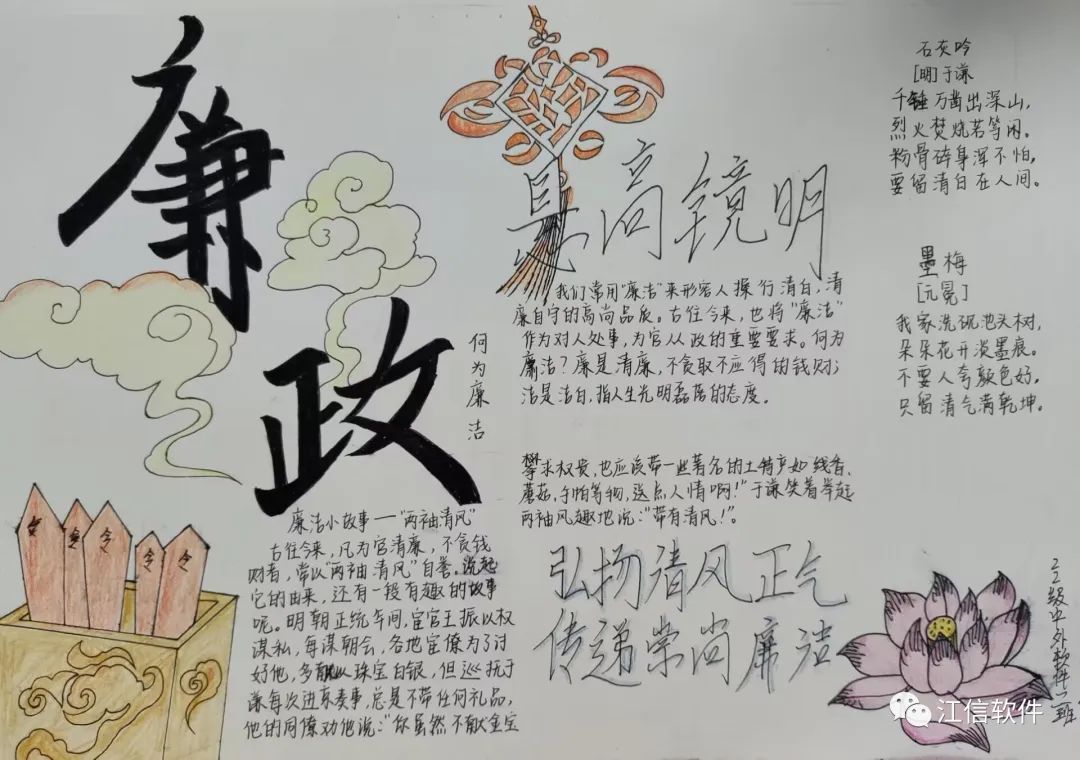 廉政
昃高镜明
石灰吟
[明]于谦
千锤万凿出深山，
烈火焚烧若等闲。
粉骨碎身浑不怕，
要留清白在人间。
墨梅
[元冕]
我家洗砚池头树，
朵朵花开淡墨痕。
不要人夸颜色好，
只留清气满乾坤。
何为廉洁
我们常用"廉洁"来形容人操行清白，清
廉自守的高尚品质。古往今来，也将"廉洁"
作为对人处事，为官从政的重要要求。何为
廉洁？廉是清廉，不贪取不应得的钱财；
洁是洁白，指人生光明磊落的态度。
廉洁小故事——"两袖清风"
古往今来，凡为官清廉，不贪钱
财者，常以"两袖清风"自誉。说起
它的由来，还有一段有趣的故事
呢。明朝正统年间，宦官王振以权
谋私，每谋朝会，各地官僚为了讨
好他，多献以珠宝白银，但巡抚于
谦每次进京奏事，总是不带任何礼品，
他的同僚劝他说："你虽然不献金宝
攀求权贵，也应该带一些著名的土特产如线香，
蘑菇，手帕等物，送点人情啊！"于谦笑着举起
两袖风趣地说："带有清风！"。
弘扬清风正气
传递崇尚廉洁
令
令
令
令
令
22级中外软件二班
江信软件